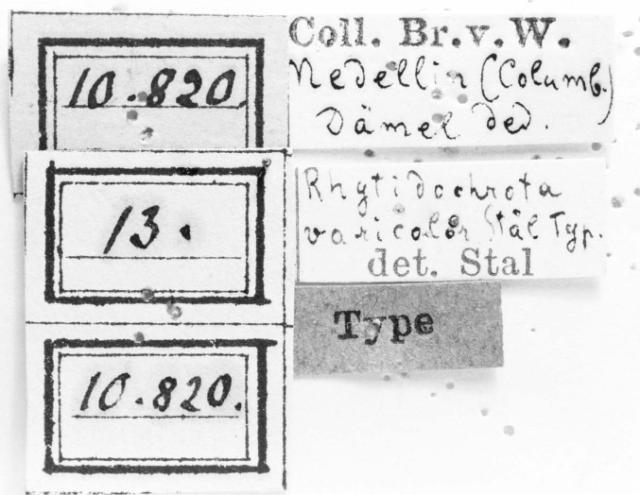 10.820.
13.
10.820.
Coll. Br.v.W.
Medellin (Columb.)
Dämel ded.
Rhytidochrota
varicolor Stål Typ.
det. Stal
Type